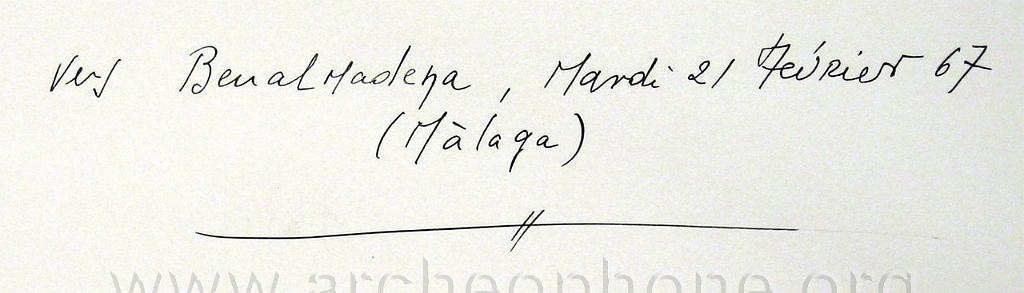 Vers Benalmadena, Mardi 21 Février 67
(Màlaga)
www.archeophone.org